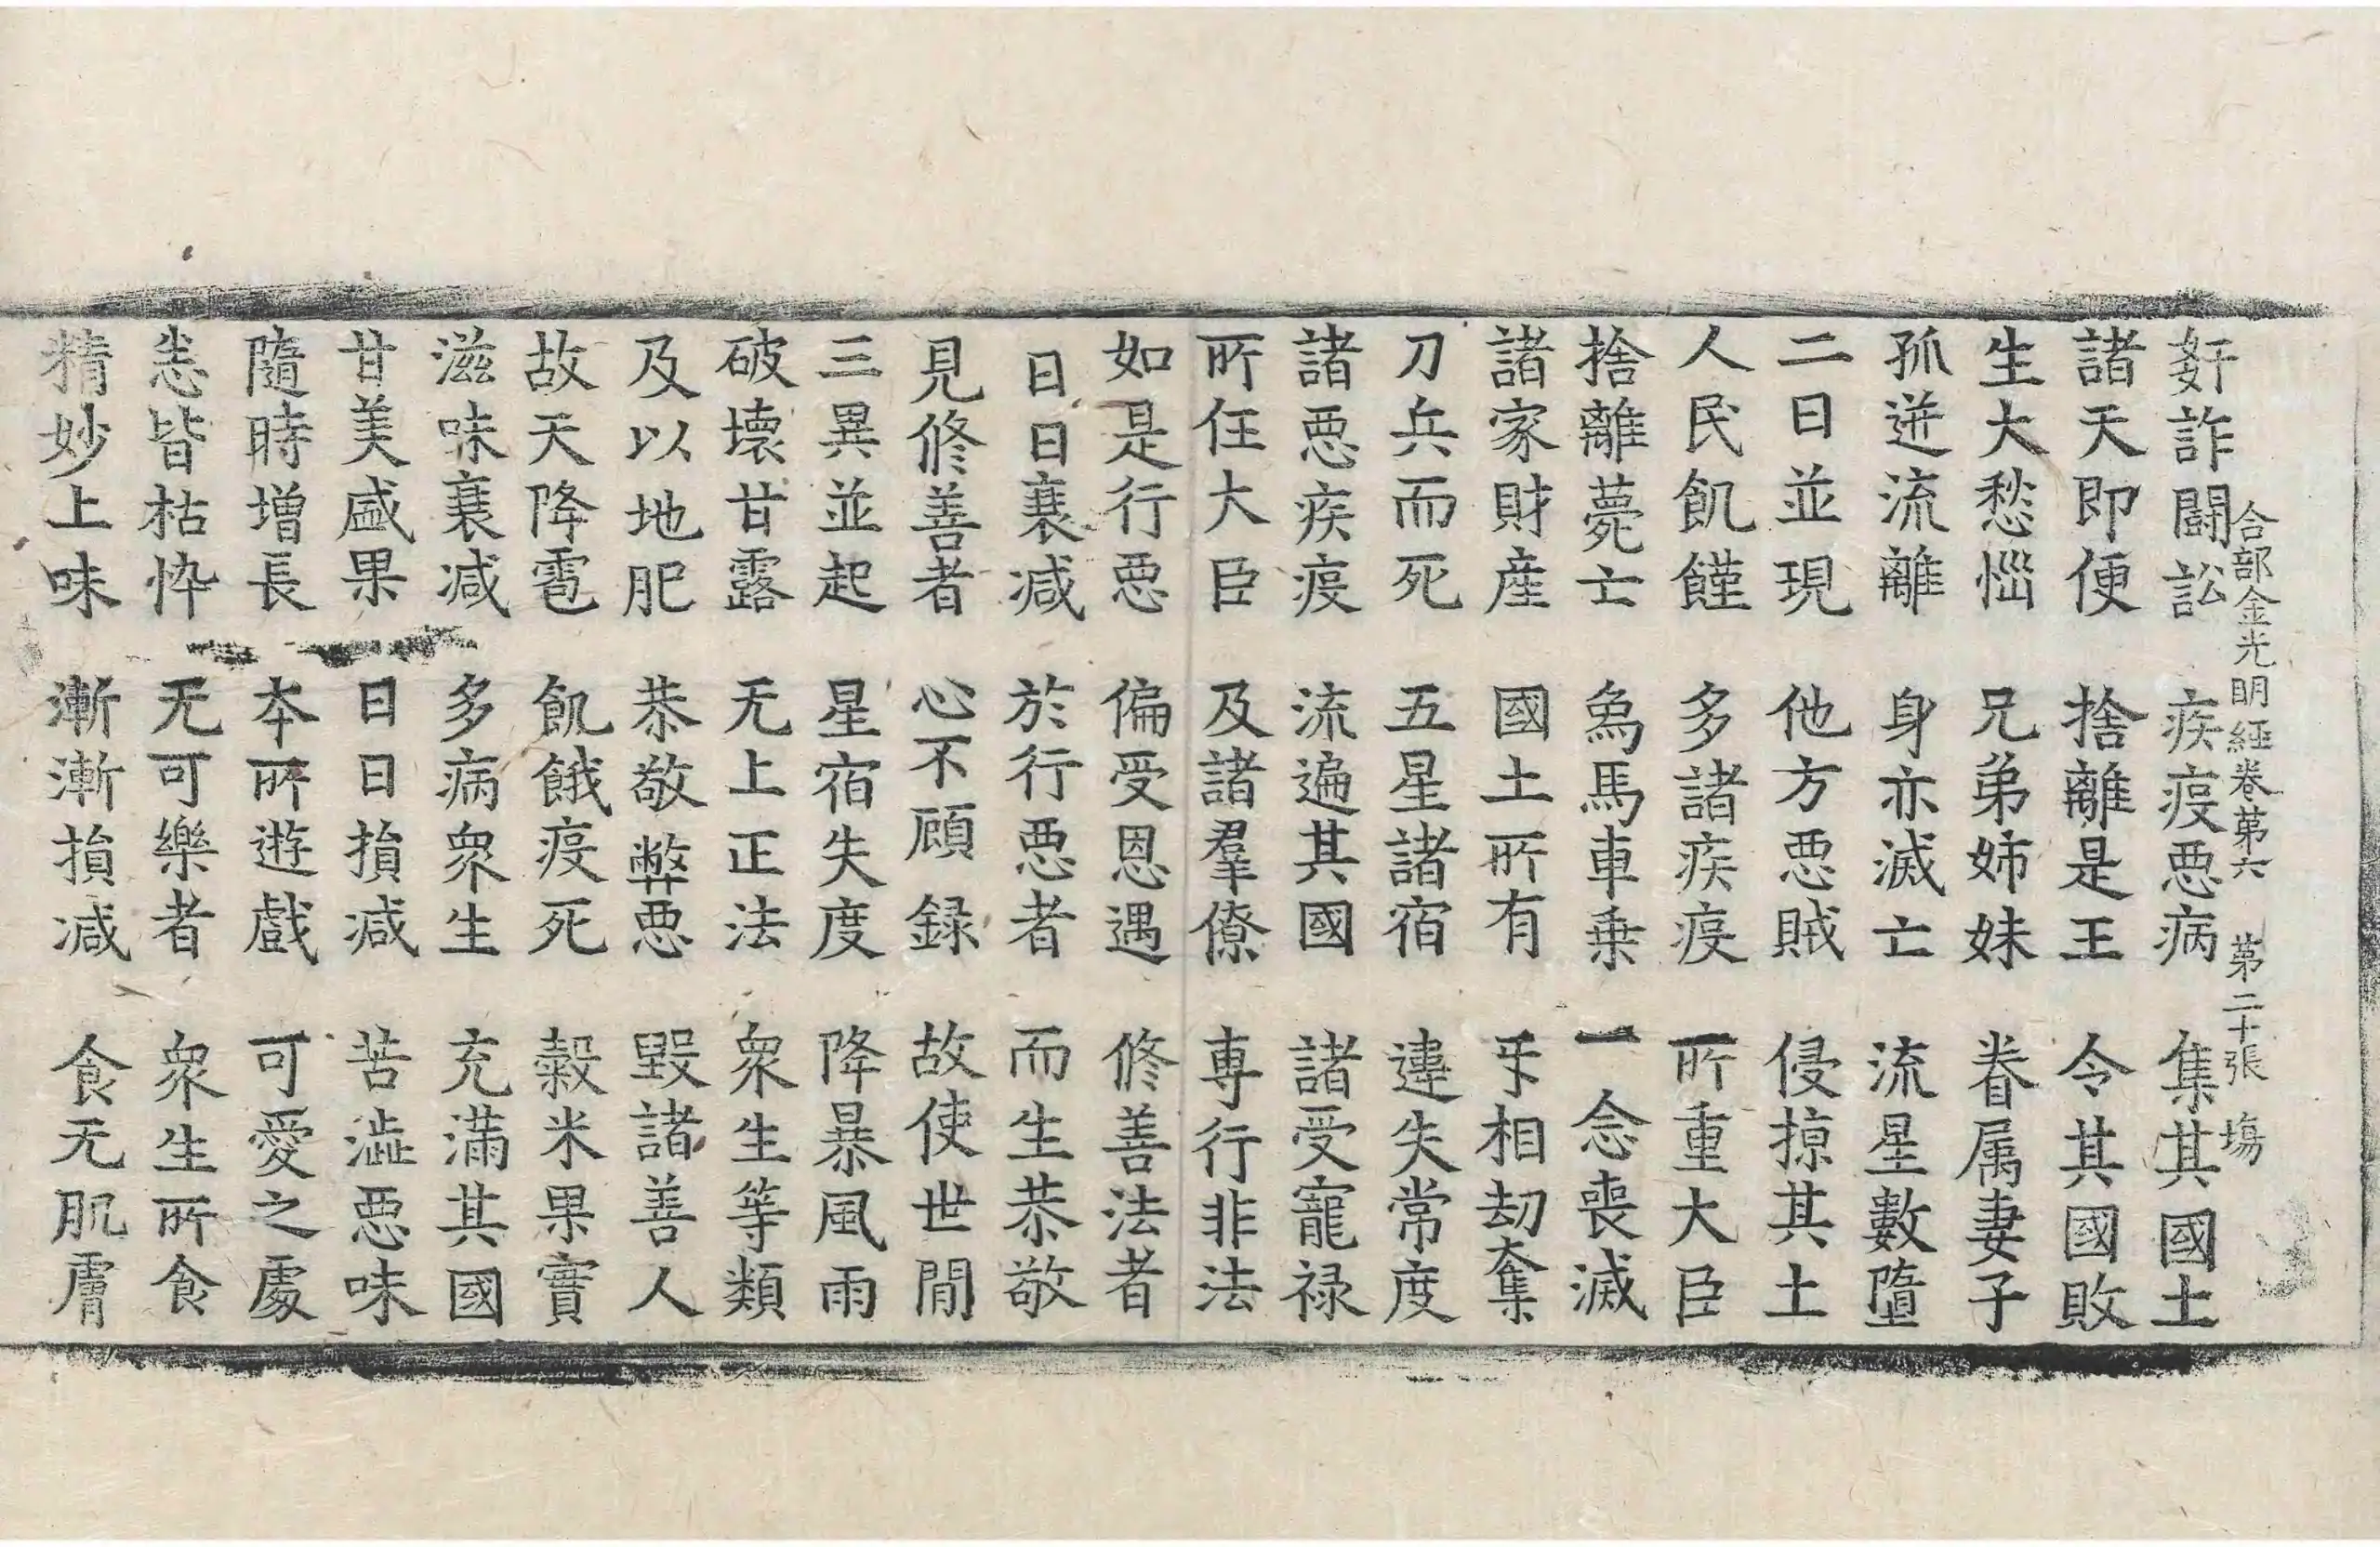 合部金光明經卷第六 第二十張 塲
姧詐闘訟 疾疫惡病 集其國土
諸天即便 捨離是王 令其國敗
生大愁惱 兄弟姉妹 眷属妻子
孤迸流離 身亦滅亡 流星數墮
二日並現 他方惡賊 侵掠其土
人民飢饉 多諸疾疫 所重大臣
捨離薨亡 象馬車乗 一念喪滅
諸家財産 國土所有 㸦相劫奪
刀兵而死 五星諸宿 違失常度
諸惡疾疫 流遍其國 諸受寵禄
所任大臣 及諸羣僚 専行非法
如是行惡 偏受恩遇 修善法者
日日衰减 於行惡者 而生恭敬
見修善者 心不顧録 故使世間
三異並起 星宿失度 降暴風雨
破壞甘露 无上正法 衆生等類
及以地肥 恭敬弊惡 毀諸善人
故天降雹 飢餓疫死 穀米果實
滋味衰减 多病衆生 充滿其國
甘美盛果 日日損减 苦澁惡味
隨時增長 本所遊戲 可愛之處
悉皆枯悴 无可樂者 衆生所食
精妙上味 漸漸損减 食无肌膚